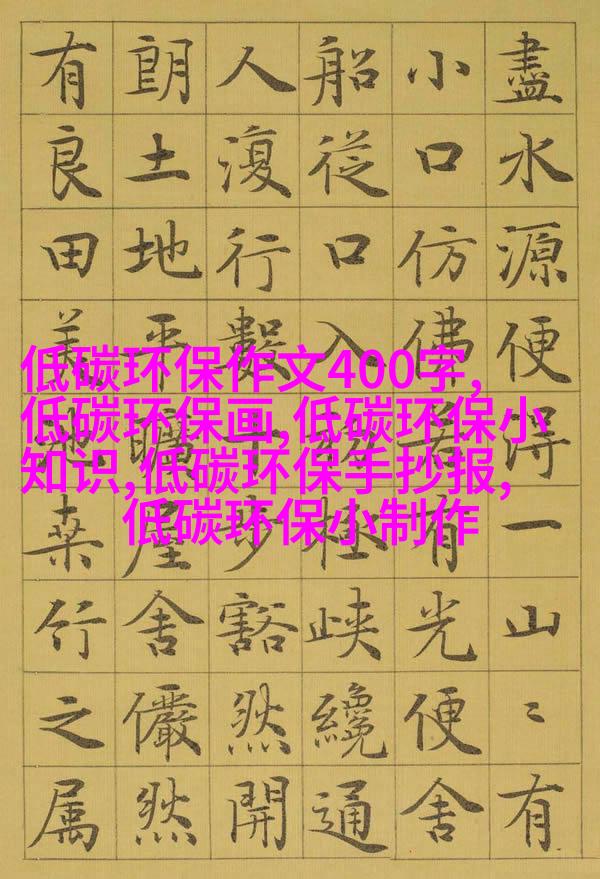 低碳环保作文400字,
低碳环保画,低碳环保小
知识,低碳环保手抄报,
低碳环保小制作
盡水源便得一山〻有
小口仿佛若有光便舍
船從口入初極峽纔通
人復行數十步豁然開
朗土地平曠屋舍儼然
有良田美池桑竹之属